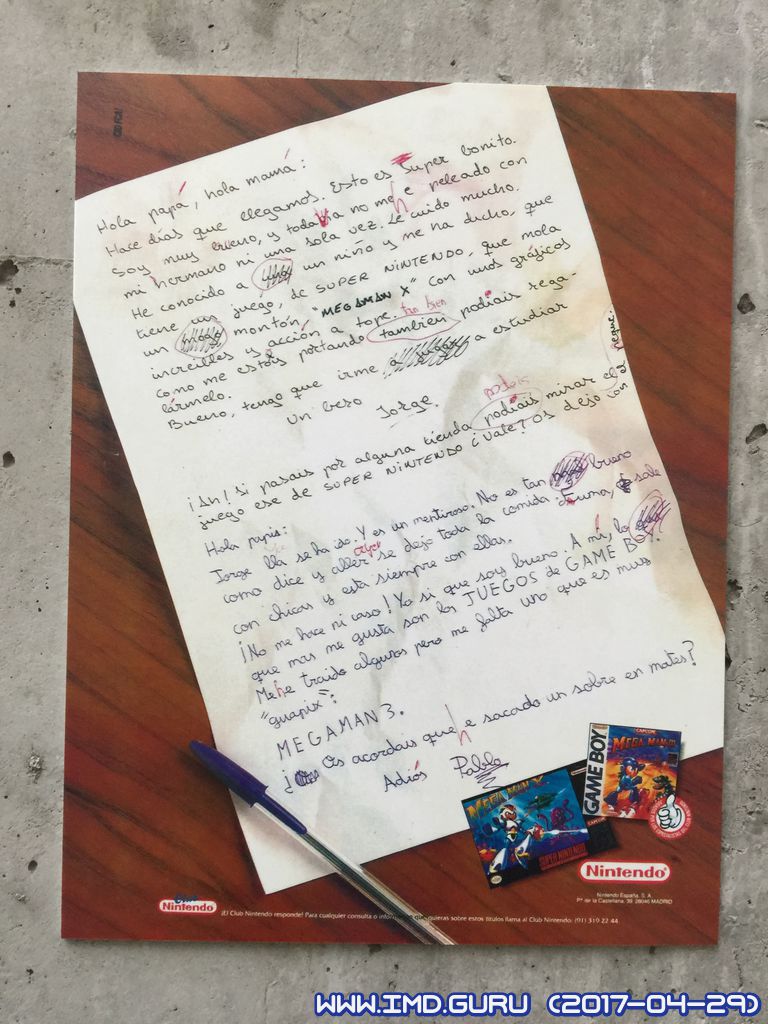 Hola papá, hola mamá:
Hace días que llegamos. Esto es Super bonito.
Soy muy bueno, y todavia no me he peleado con
mi hermano ni una sola vez. Le cuido mucho.
He conocido a un niño y me ha ducho, que
tiene un juego, de SUPER NINTENDO, que mola
un montón, "MEGAMAN X" con unos gráficos
increibles y acción a tope. tan bien
como me estois portando tambien podiais rega-
lármelo.
Bueno, tengo que irme a jugar a estudiar
Un beso
Jorge.
podeis
¡Ah! Si pasais por alguna tienda podiais mirar el
juego ese de SUPER NINTENDO ¿Vale? Os dejo con el peque.
Hola papis:
Jorge lla se ha ido. Y es un mentiroso. No es tan bueno
como dice y aller se dejo toda la comida. Fuma, sale
ayer
con chicas y esta siempre con ellas.
¡No me hace ni caso! Yo si que soy bueno. A mí, lo
que mas me gusta son los JUEGOS de GAME BOY.
Me he traido algunos pero me falta uno que es muy
"guapix":
MEGAMAN 3.
¿Os acordais que he sacado un sobre en mates?
Adiós Pablo
MEGA MAN X
SUPER NINTENDO
CAPCOM
GAME BOY
CAPCOM
MEGA MAN III
Nintendo
Nintendo España, S.A.
Pº de la Castellana, 39. 28046 MADRID
Club
Nintendo
¡El Club Nintendo responde! Para cualquier consulta o información que quieras sobre estos títulos llama al Club Nintendo: (91) 319 22 44.
WWW.IMD.GURU (2017-04-29)